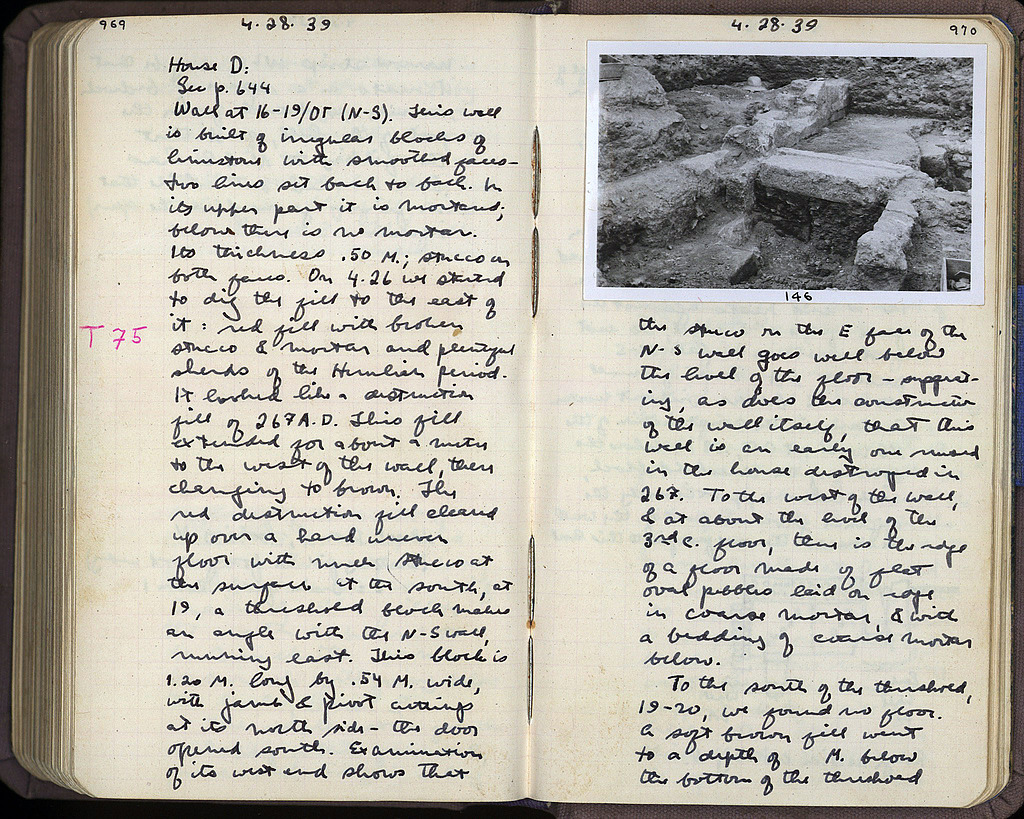 969
4.28.39
House D:
See p. 644
Wall at 16-19/ΟΤ (N-S). This wall
is built of irregular blocks of
limestone with smoothed faces -
two lines set back to back. In
its upper part it is mortared;
below there is no mortar.
Its thickness .50 M.; stucco on
both faces. On 4.26 we started
to dig the fill to the east of
it: red fill with broken
T 75
stucco & mortar and plentiful
sherds of the Herulian period.
It looked like a destruction
fill of 267 A.D. This fill
extended for about a meter
to the west of the wall, then
changing to brown. The
red destruction fill cleared
up over a hard uneven
floor with much stucco at
the surface at the south, at
19, a threshold block makes
an angle with the N-S wall,
running east. This block is
1.20 M. long by .54 M. wide,
with jamb & pivot cuttings
at its north side - the door
opened south. Examination
of its west end shows that
4.28.39
970
146
the stucco on the E face of the
N-S wall goes well below
the level of the floor - suggest-
ing, as does the construction
of the wall itself, that this
wall is an early one reused
in the house destroyed in
267. To the west of the wall,
& at about the level of the
3rd c. floor, there is the edge
of a floor made of flat
oval pebbles laid on edge
in coarse mortar, & with
a bedding of coarse mortar
below.
To the south of the threshold,
19-20, we found no floor.
A soft brown fill went
to a depth of M. below
the bottom of the threshold